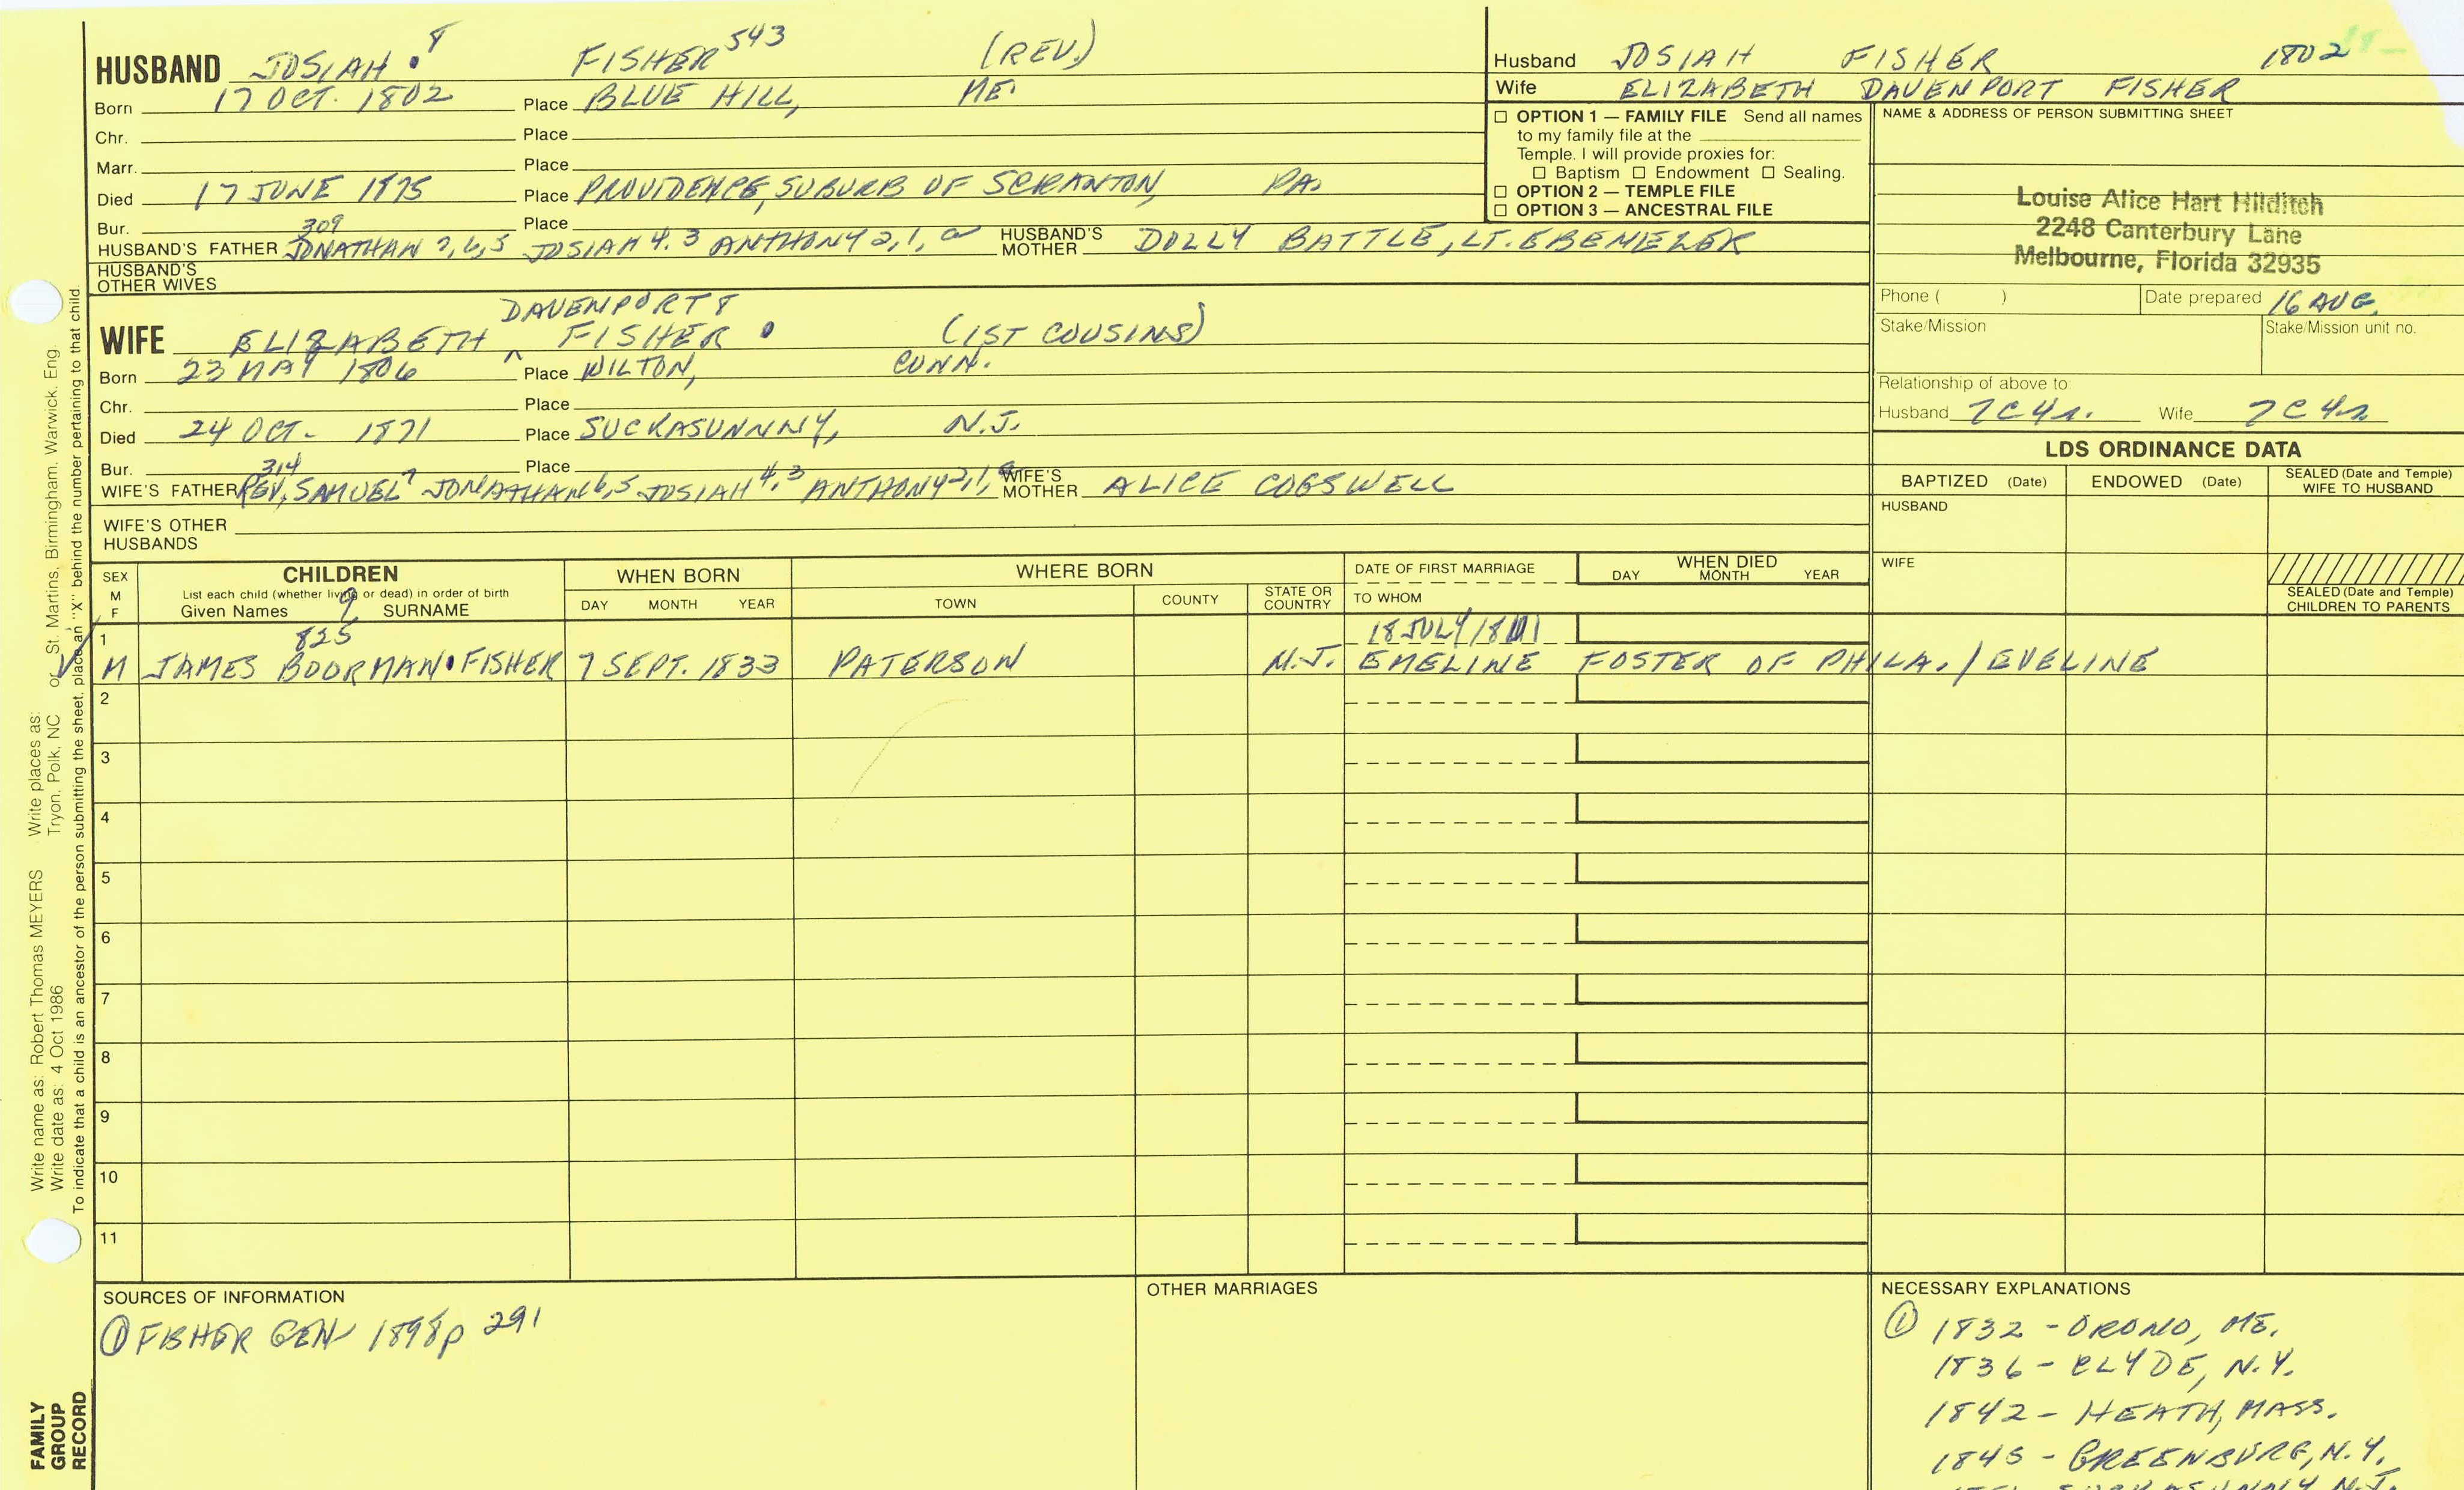 HUSBAND JOSIAH 8 FISHER 543 (REV.)
Born 17 OCT. 1802 Place BLUE HILL, ME.
Chr. Place
Marr. Place
Died 17 JUNE 1875 Place PROVIDENCE, SUBURB OF SCRANTON, PA.
Bur. Place
309
HUSBAND'S FATHER JONATHAN 7,6,5 JOSIAH 4.3 ANTHONY 2,1, a HUSBAND'S MOTHER DOLLY BATTLE, LT. EBENEZER
HUSBAND'S OTHER WIVES
DAVENPORT 8
WIFE ELIZABETH ^ FISHER (1ST COUSINS)
Born 23 MAY 1806 Place WILTON, CONN.
Chr. Place
Died 24 OCT. 1871 Place SUCKASUNNNY, N.J.
Bur. Place
314
WIFE'S FATHER REV. SAMUEL 7 JONATHAN 6,5 JOSIAH 4,3 ANTHONY 2,1, a WIFE'S MOTHER ALICE COGSWELL
WIFE'S OTHER HUSBANDS
Husband JOSIAH FISHER 1802
Wife ELIZABETH DAVENPORT FISHER
☐ OPTION 1 — FAMILY FILE Send all names
to my family file at the
Temple. I will provide proxies for:
☐ Baptism ☐ Endowment ☐ Sealing.
☐ OPTION 2 — TEMPLE FILE
☐ OPTION 3 — ANCESTRAL FILE
NAME & ADDRESS OF PERSON SUBMITTING SHEET
Louise Alice Hart Hilditch
2248 Canterbury Lane
Melbourne, Florida 32935
Phone ( ) Date prepared 16 AUG.
Stake/Mission Stake/Mission unit no.
Relationship of above to:
Husband 7C4r. Wife 7C4r
LDS ORDINANCE DATA
BAPTIZED (Date) ENDOWED (Date) SEALED (Date and Temple) WIFE TO HUSBAND
HUSBAND
WIFE
SEALED (Date and Temple) CHILDREN TO PARENTS
SEX M F
CHILDREN
List each child (whether living or dead) in order of birth
Given Names 9 SURNAME
WHEN BORN
DAY MONTH YEAR
WHERE BORN
TOWN COUNTY STATE OR COUNTRY
DATE OF FIRST MARRIAGE
TO WHOM
WHEN DIED
DAY MONTH YEAR
1 825 18 JULY
M JAMES BOORMAN FISHER 7 SEPT. 1833 PATERSON N.J. EMELINE FOSTER OF PHILA. / EVELINE
2
3
4
5
6
7
8
9
10
11
SOURCES OF INFORMATION
① FISHER GEN 1898 p 291
OTHER MARRIAGES
NECESSARY EXPLANATIONS
① 1832 - ORONO, ME.
1836 - CLYDE, N.Y.
1842 - HEATH, MASS.
1845 - GREENBURG, N.Y.
Write name as: Robert Thomas MEYERS Write places as: St. Martins, Birmingham, Warwick, Eng.
Write date as: 4 Oct 1986 Tryon, Polk, NC or
To indicate that a child is an ancestor of the person submitting the sheet, place an "X" behind the number pertaining to that child.
FAMILY
GROUP
RECORD